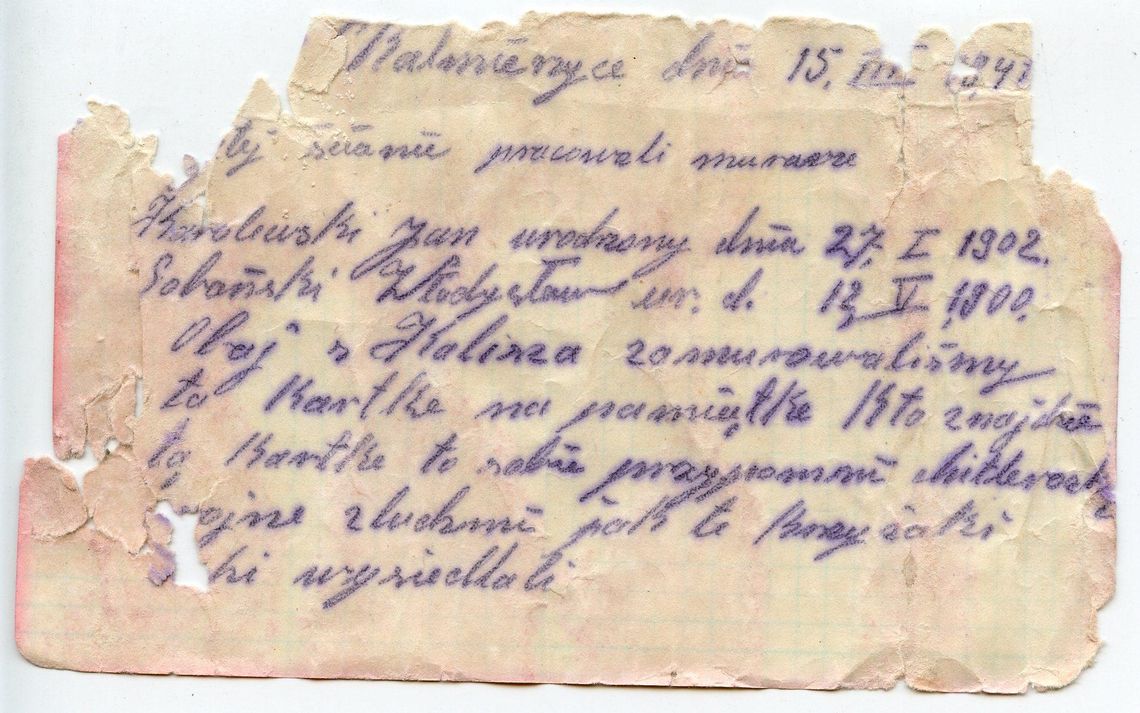 Kalmiényce dnia 15. III 1941
tej ścianie pracowali murarze
Karolewski Jan urodzony dnia 27. I 1902.
Sobański Władysław ur. d. 12. V 1900.
Obaj s Kalisza zamurowaliśmy
ta Kartke na pamiątke Kto znajdzie
tą Kartke to sobie przypomni chitlerosk
ojne zludzmi jak te Krzyżaki
ki wysiedlali